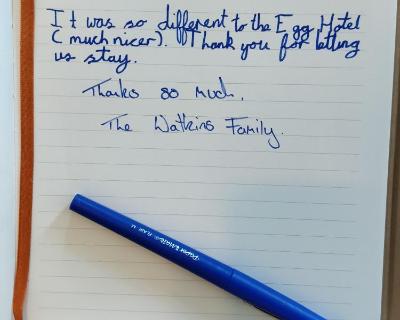 It was so different to the Egg Hotel
(much nicer). Thank you for letting
us stay.
Thanks so much.
The Watkins Family.
Paper Mate FLAIR M